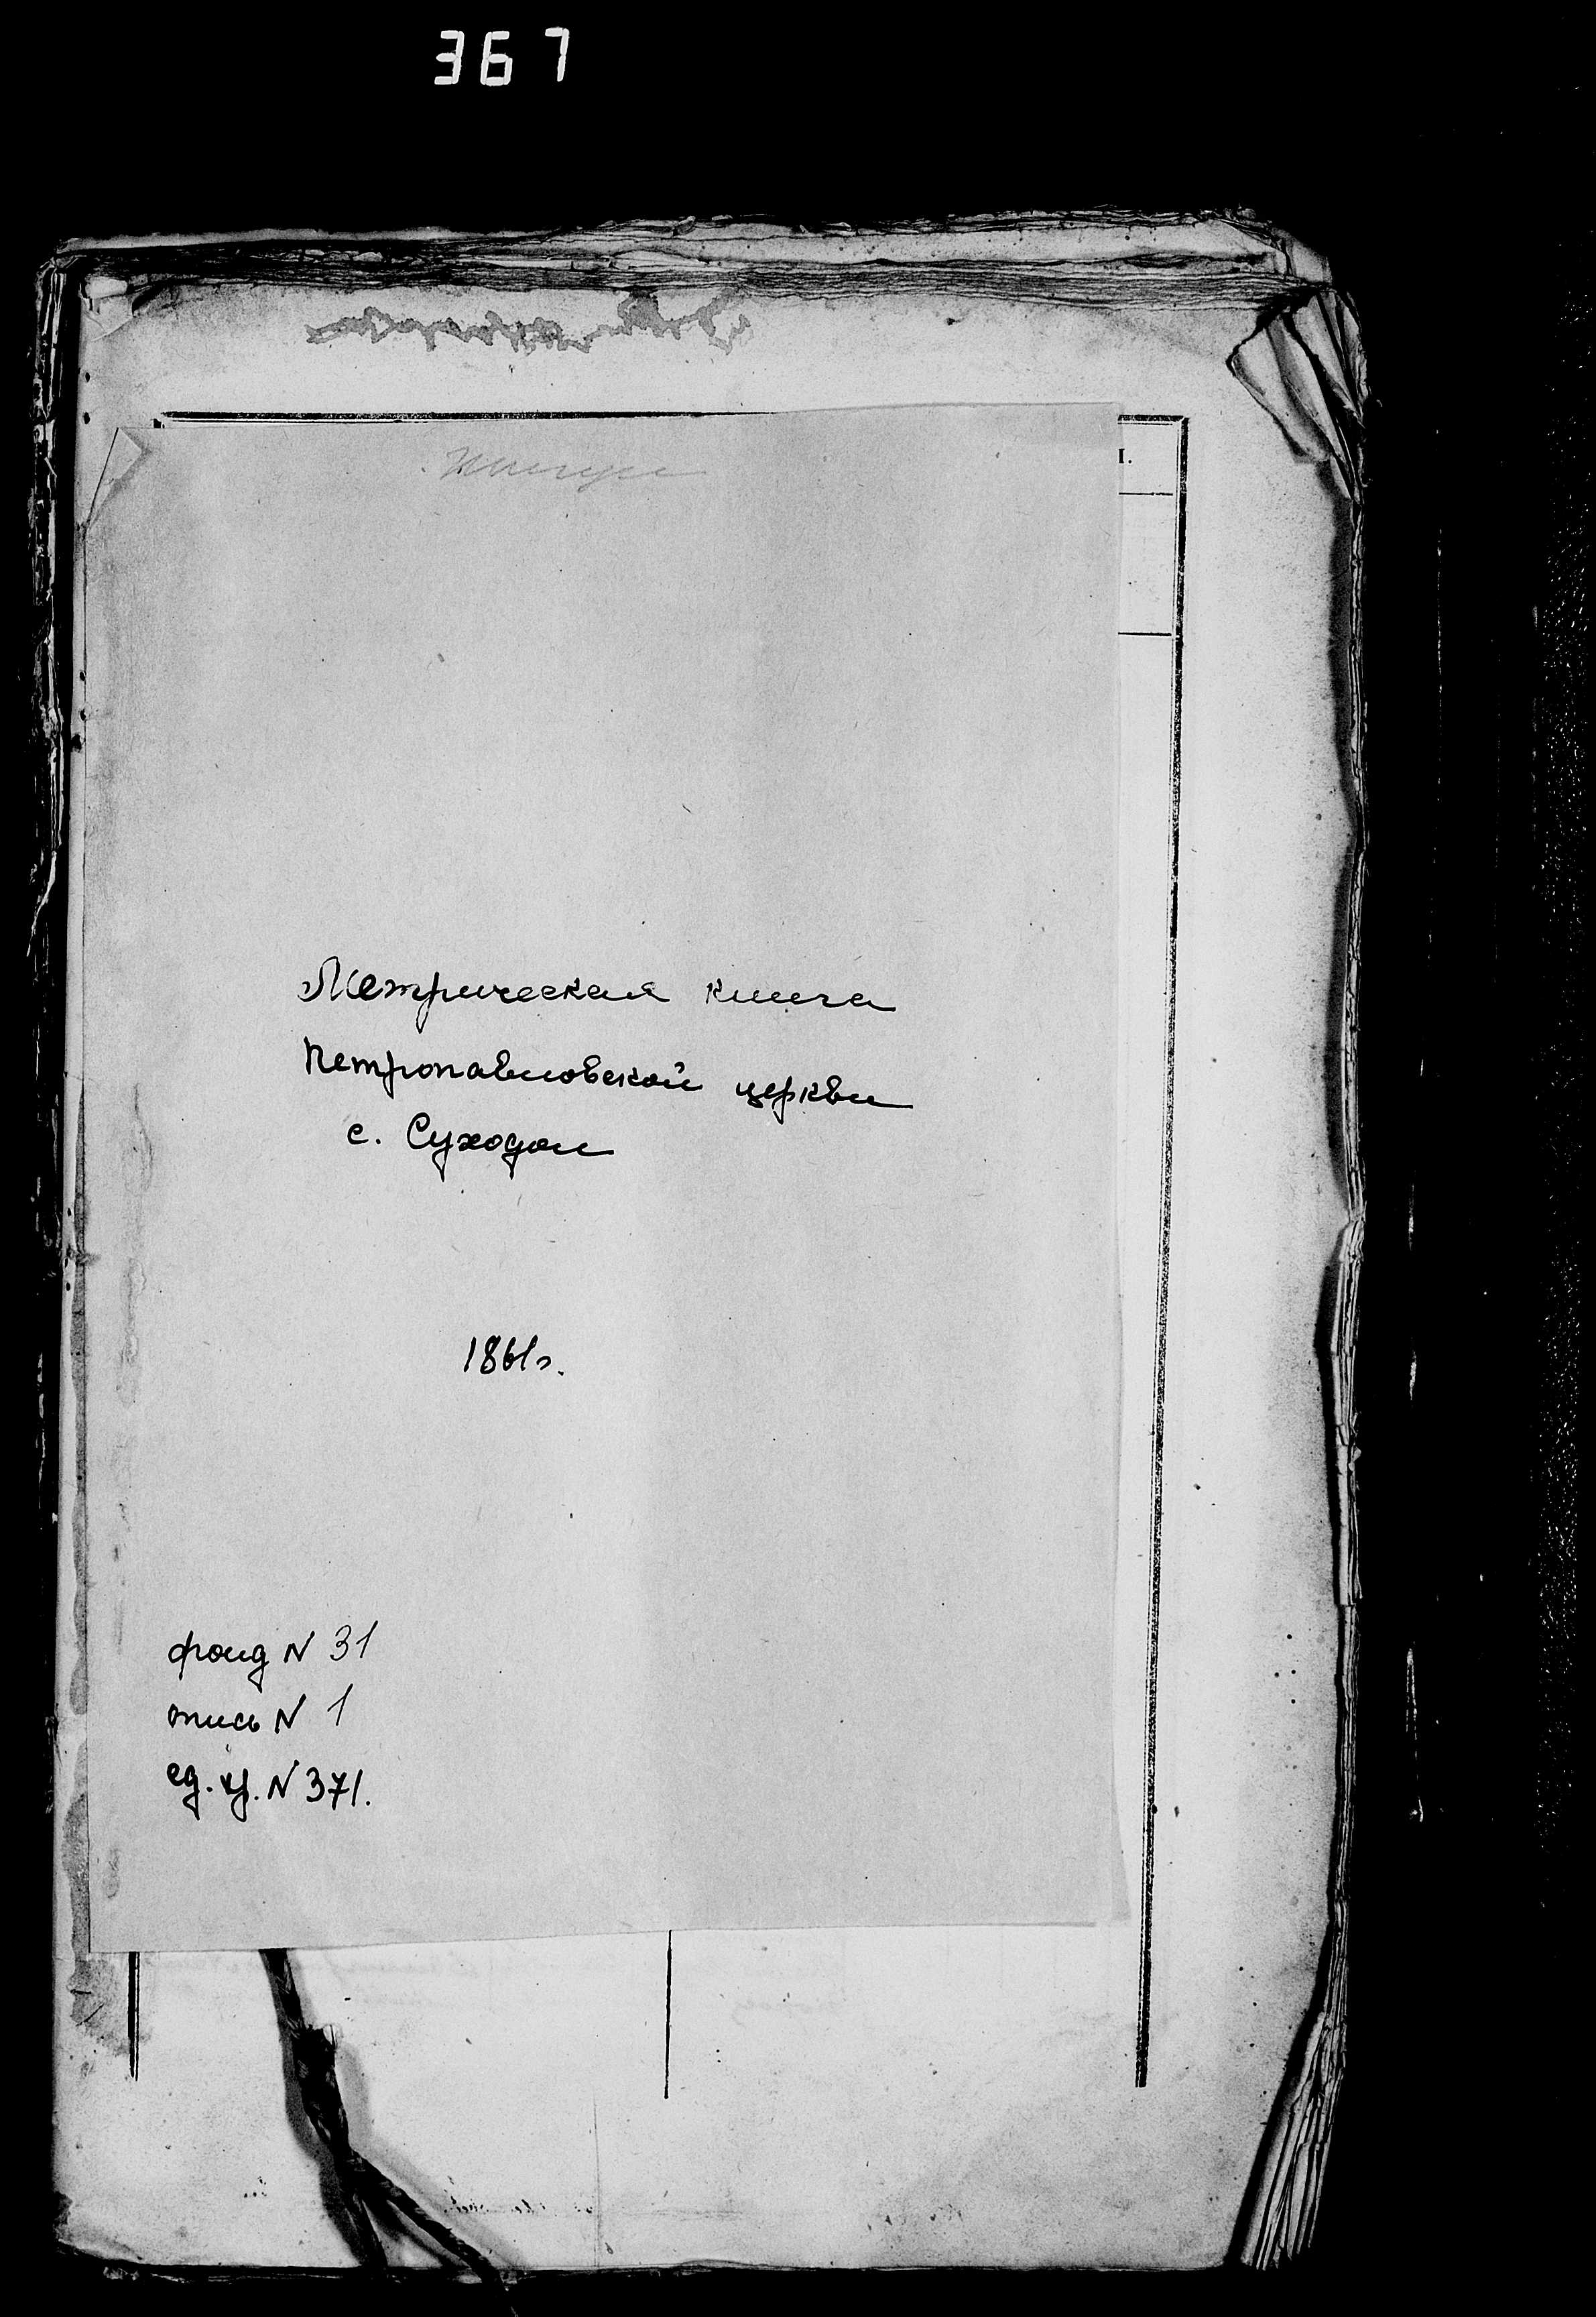 367
Метрическая книга
Петропавловской церкви
с. Суходол
1861г.
фонд N 31
опись N 1
ед. хр. N 371.